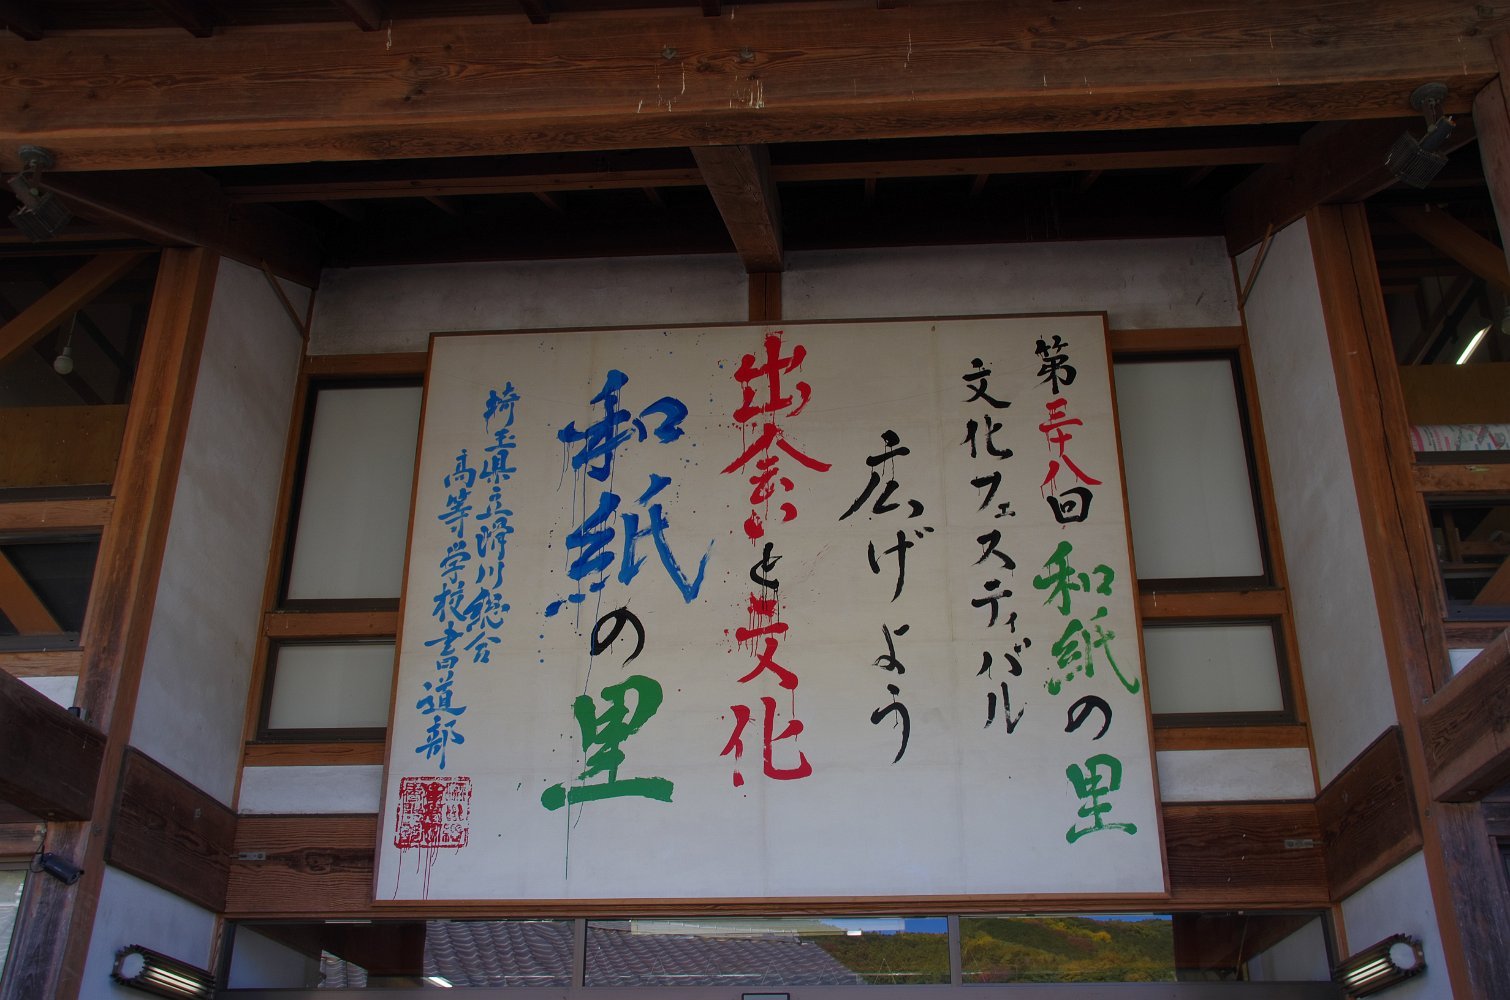 第三十八回和紙の里
文化フェスティバル
広げよう
出会いと文化
和紙の里
埼玉県立滑川総合
高等学校書道部